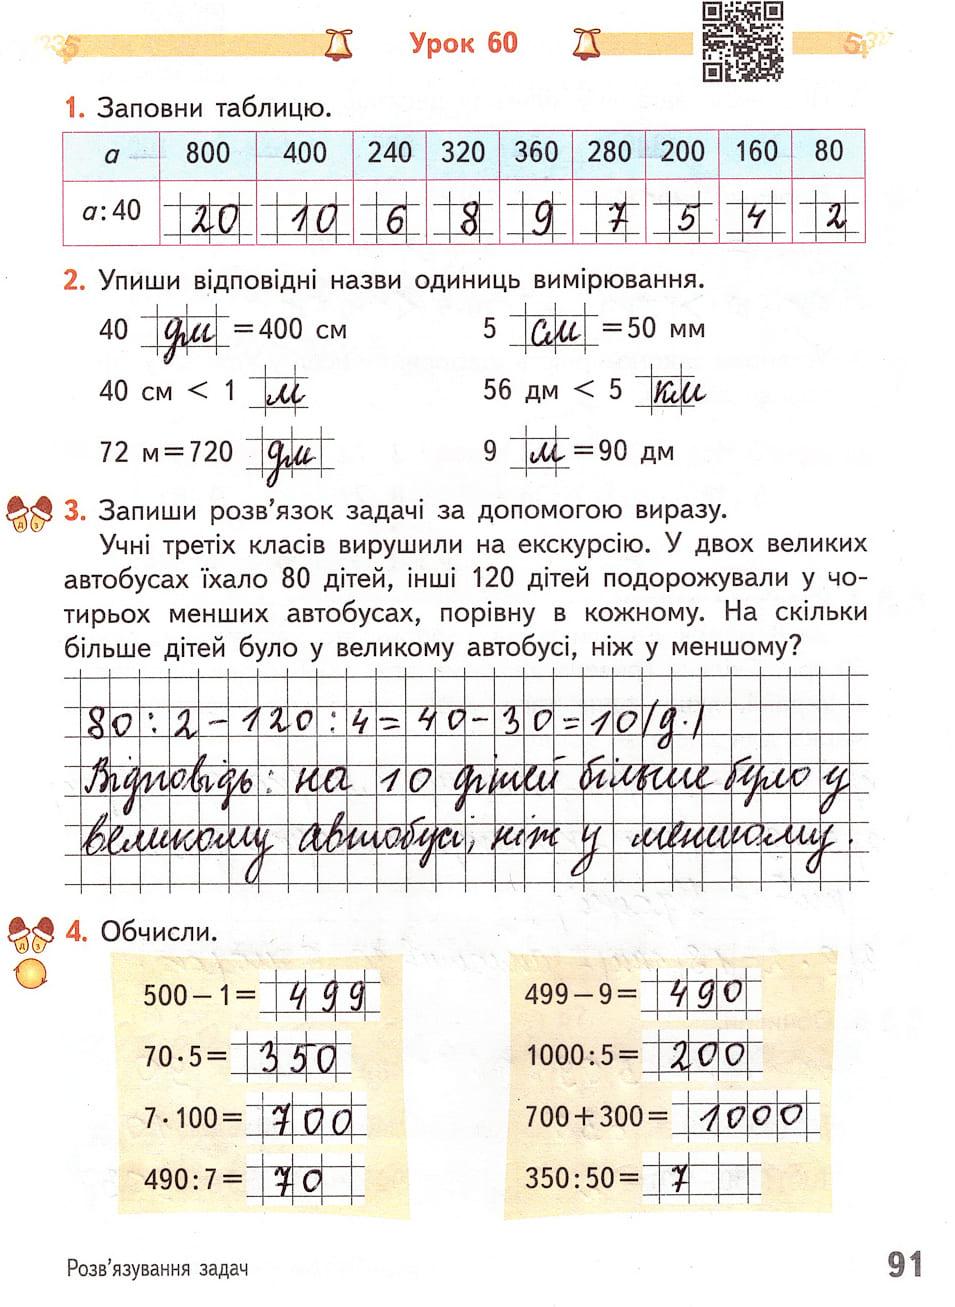 Урок 60
1. Заповни таблицю.
a 800 400 240 320 360 280 200 160 80
a:40 20 10 6 8 9 7 5 4 2
2. Упиши відповідні назви одиниць вимірювання.
40 дм = 400 см 5 см = 50 мм
40 см < 1 м 56 дм < 5 км
72 м = 720 дм 9 м = 90 дм
3. Запиши розв'язок задачі за допомогою виразу.
Учні третіх класів вирушили на екскурсію. У двох великих
автобусах їхало 80 дітей, інші 120 дітей подорожували у чо-
тирьох менших автобусах, порівну в кожному. На скільки
більше дітей було у великому автобусі, ніж у меншому?
80 : 2 - 120 : 4 = 40 - 30 = 10 (д.)
Відповідь: на 10 дітей більше було у
великому автобусі, ніж у меншому.
4. Обчисли.
500 – 1 = 499 499 – 9 = 490
70 · 5 = 350 1000 : 5 = 200
7 · 100 = 700 700 + 300 = 1000
490 : 7 = 70 350 : 50 = 7
Розв'язування задач 91